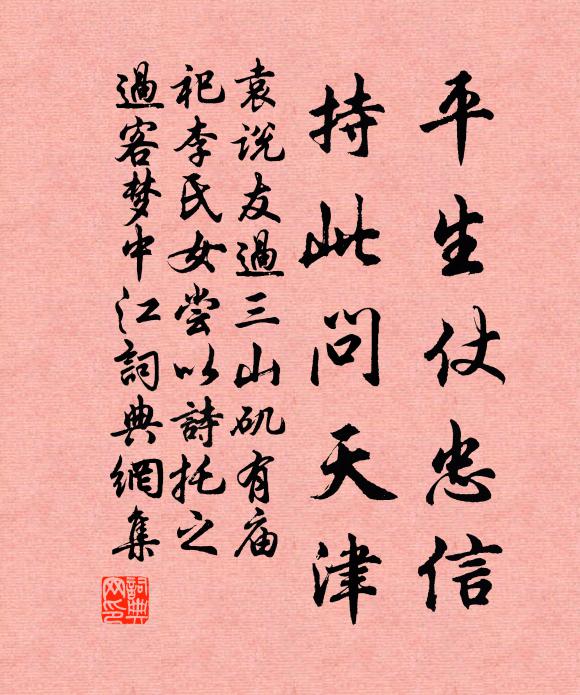 平生仗忠信
持此問天津
袁说友過三山矶有庙
祀李氏女尝以詩托之
過客梦中江詞典網集
詞典網印